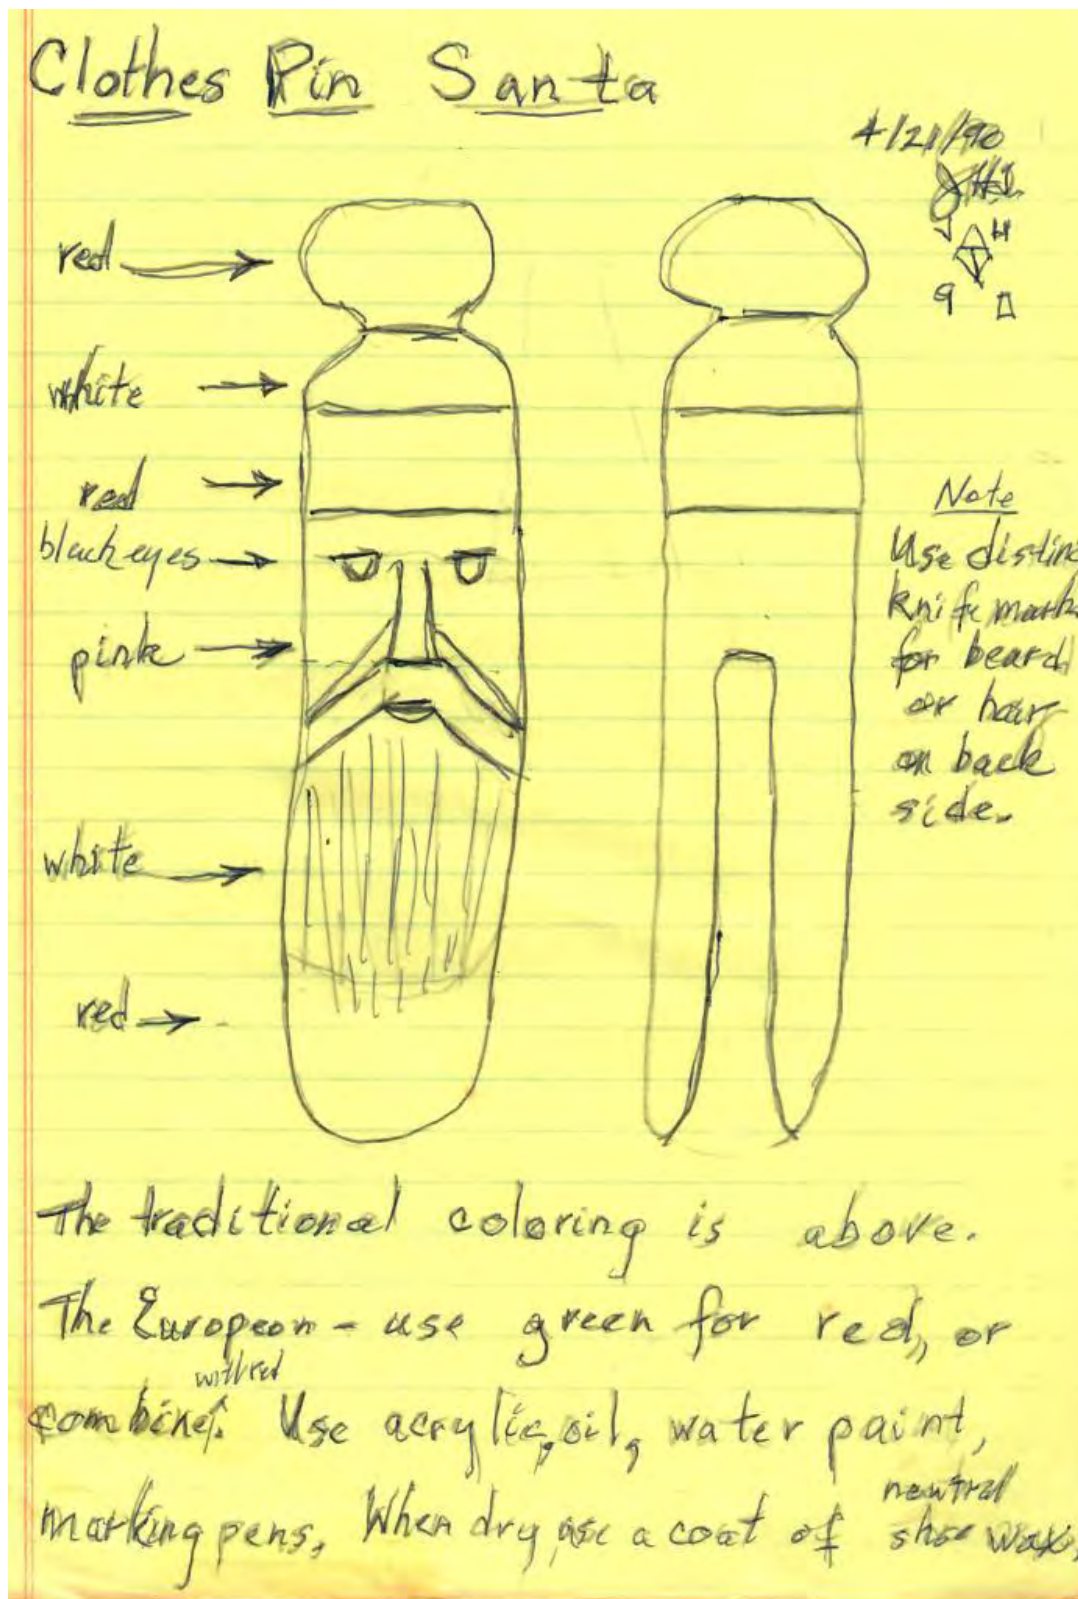 Clothes Pin Santa
4/21/90
JHI
J H
9 0
red
white
red
black eyes
pink
white
red
Note
Use distinc
knife mark
for beard
or hair
on back
side.
The traditional coloring is above.
The European - use green for red, or
with red
combine. Use acrylic, oil, water paint,
neutral
marking pens. When dry use a coat of shoe wax.